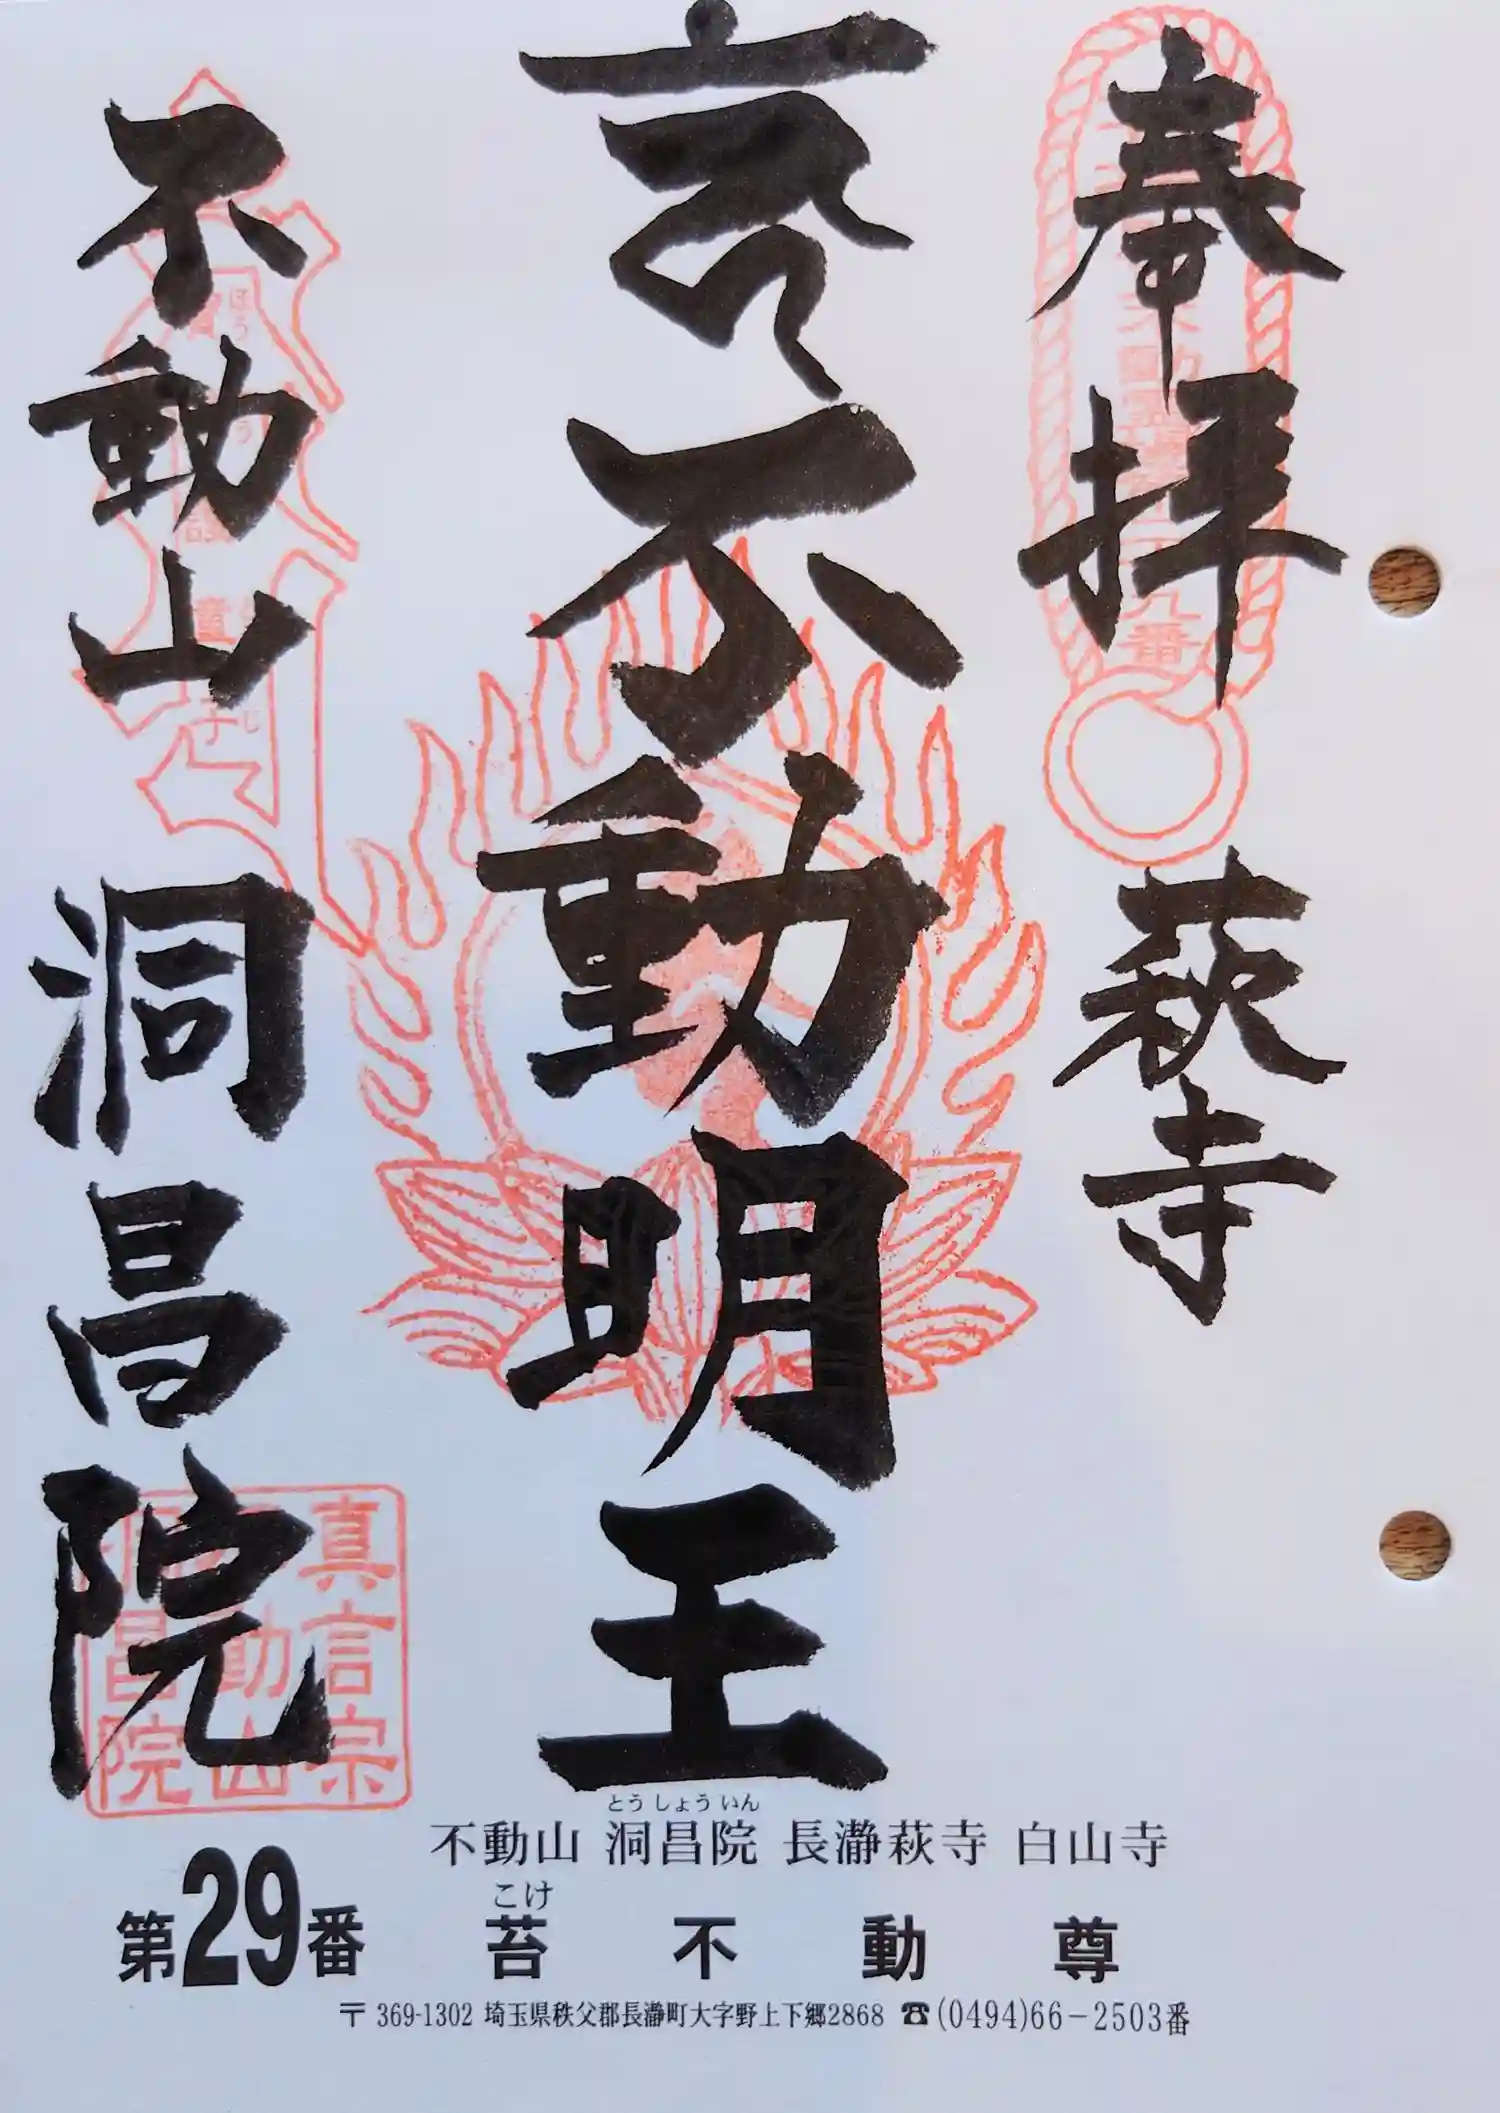 奉拝 萩寺
不動明王
不動山 洞昌院
九番
童子
真言宗
動山
昌院
とう しょう いん
不動山 洞昌院 長瀞萩寺 白山寺
こけ
第29番 苔不動尊
〒369-1302 埼玉県秩父郡長瀞町大字野上下郷2868 ☎(0494)66-2503番